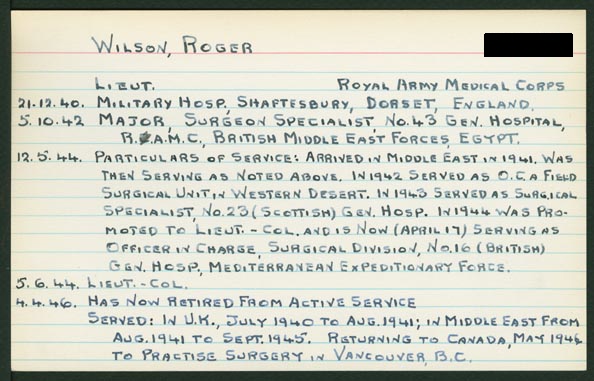 WILSON, ROGER
LIEUT. ROYAL ARMY MEDICAL CORPS
21.12.40. MILITARY HOSP., SHAFTESBURY, DORSET, ENGLAND.
5.10.42 MAJOR, SURGEON SPECIALIST, NO.43 GEN. HOSPITAL,
R.A.M.C., BRITISH MIDDLE EAST FORCES, EGYPT.
12.5.44. PARTICULARS OF SERVICE: ARRIVED IN MIDDLE EAST IN 1941. WAS
THEN SERVING AS NOTED ABOVE. IN 1942 SERVED AS O.C. A FIELD
SURGICAL UNIT, IN WESTERN DESERT. IN 1943 SERVED AS SURGICAL
SPECIALIST, NO.23 (SCOTTISH) GEN. HOSP. IN 1944 WAS PRO-
MOTED TO LIEUT.-COL. AND IS NOW (APRIL 17) SERVING AS
OFFICER IN CHARGE, SURGICAL DIVISION, NO.16 (BRITISH)
GEN. HOSP., MEDITERRANEAN EXPEDITIONARY FORCE.
5.6.44. LIEUT.-COL.
4.4.46. HAS NOW RETIRED FROM ACTIVE SERVICE
SERVED: IN U.K., JULY 1940 TO AUG. 1941; IN MIDDLE EAST FROM
AUG. 1941 TO SEPT. 1945. RETURNING TO CANADA, MAY 1946
TO PRACTISE SURGERY IN VANCOUVER, B.C.